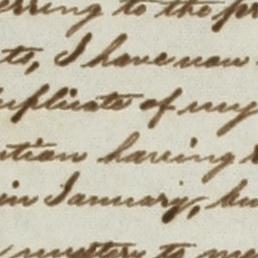 erring to the pr
ts, I have now
uplicate of my
ution having
in January, bu
mystery to me